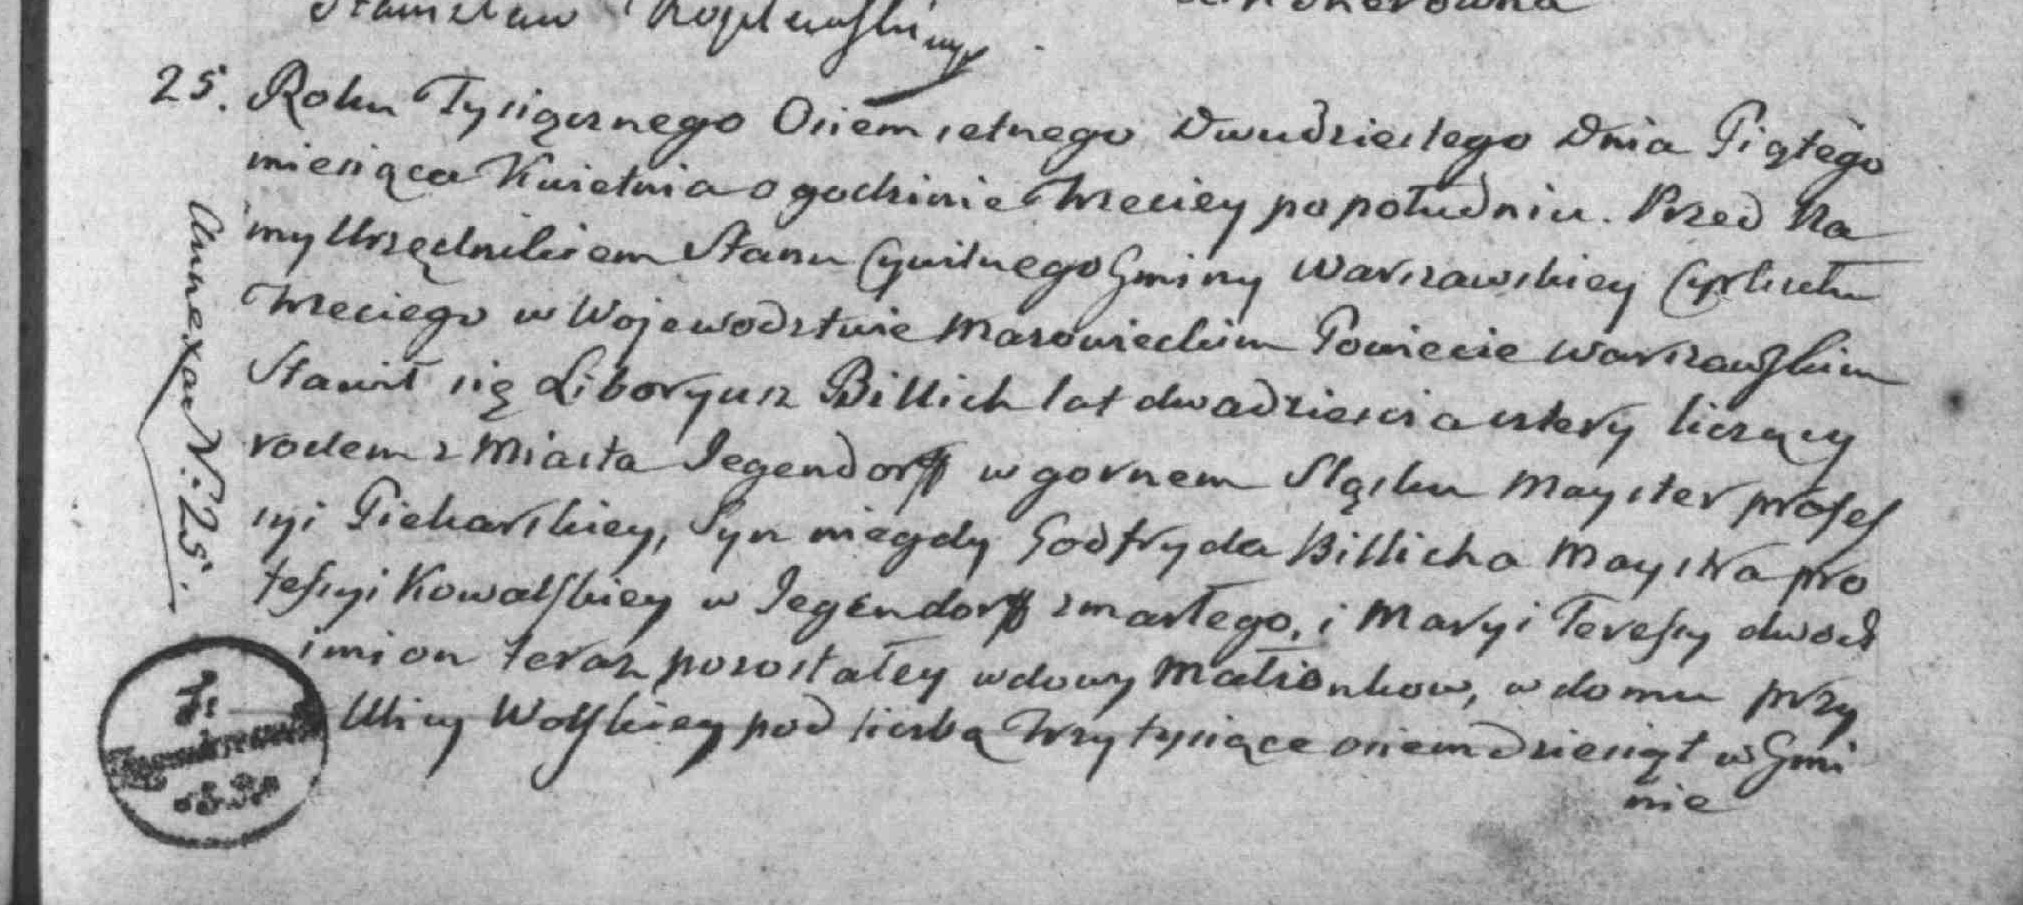 Stanisław
25. Roku Tysiącznego Osiemsetnego Dwudziestego Dnia Piątego
miesiąca Kwietnia o godzinie trzeciey po południu. Przed Na
my Urzędnikiem Stanu Cywilnego Gminy Warszawskiey Cyrkułu
trzeciego w Wojewodztwie Mazowieckim Powiecie Warszawskim
Stawił się Liboryusz Billich lat dwadzieścia cztery liczący
rodem z Miasta Jegendorff w gornem Sląsku Mayster profes
syi Piekarskiey, Syn niegdy Godfryda Billicha Maystra pro
fessyi Kowalskiey w Jegendorff zmarłego, i Maryi Teressy dwoch
imion teraz pozostałey wdowy Małżonkow, w domu przy
Ulicy Wolskiey pod liczbą trzy tysiące osiemdziesiąt w Gmi
nie
Annexa N: 25.